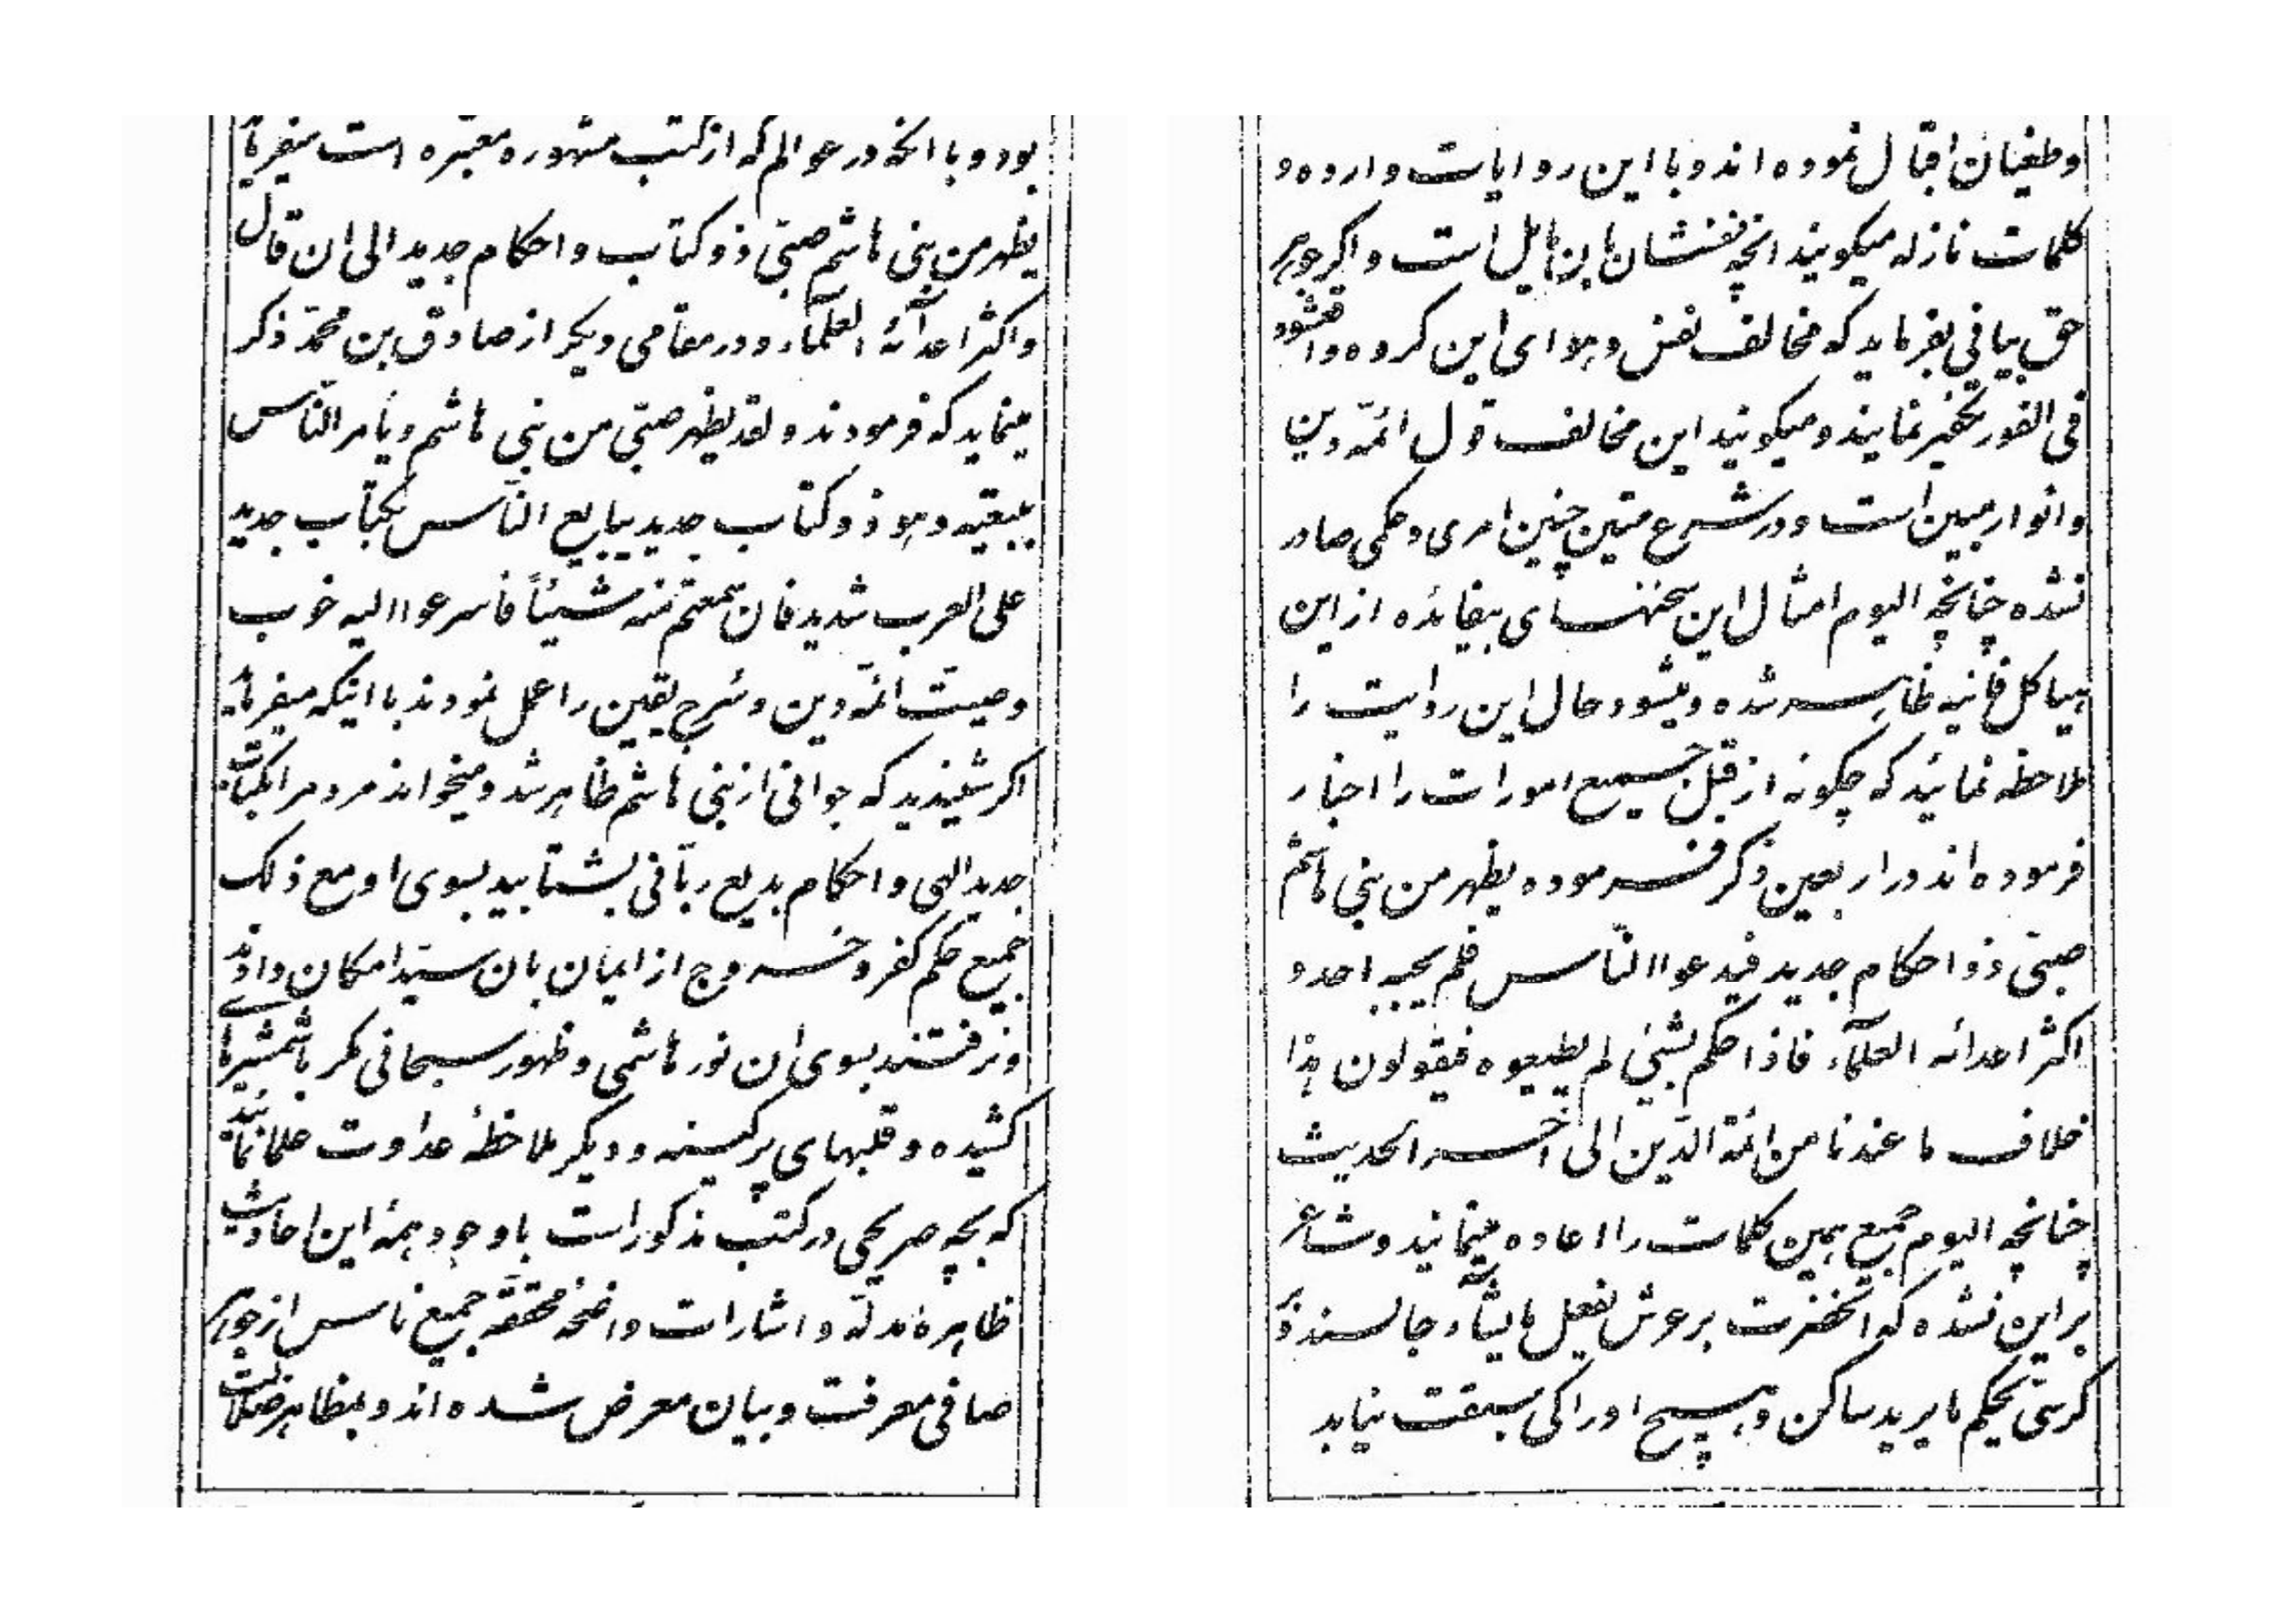 بود و با انکه در عوالم که از کتب مشهوره معتبره است میفرماید
یظهر من بنی هاشم صبیّ ذو کتاب و احکام جدید الی ان قال
و اکثر اعدآئه العلمآء و در مقامی دیگر از صادق بن محمّد ذکر
مینماید که فرمودند و لقد یظهر صبیّ من بنی هاشم و یأمر النّاس
ببیعته و هو ذو کتاب جدید یبایع النّاس بکتاب جدید
علی العرب شدید فان سمعتم منه شیئاً فاسرعوا الیه خوب
وصیّت ائمّه دین و سُرج یقین را عمل نمودند با اینکه میفرماید
اکر شنیدید که جوانی از بنی هاشم ظاهر شد و میخواند مردم را بکتاب
جدید الهی و احکام بدیع ربّانی بشتابید بسوی او مع ذلک
جمیع حکم کفر و خروج از ایمان بان سیّد امکان دادند
و نرفتند بسوی ان نور هاشمی و ظهور سبحانی مکر با شمشیرهای
کشیده و قلبهای پر کینه و دیگر ملاحظهٴ عداوت علما نمائید
که بچه صریحی در کتب مذکور است با وجود همهٴ این احادیث
ظاهرهٴ مدلّه و اشارات واضحهٴ محقّقه جمیع ناس از جوهر
صافی معرفت و بیان معرض شده اند و بمظاهر ضلالت
و طغیان اقبال نموده اند و با این روایات وارده و
کلمات نازله میکویند انچه نفسشان بان مایل است و اکر جوهر
حق بیانی بفرماید که مخالف نفس و هوای این کروه واقع شود
فی الفور تکفیر نمایند و میکویند این مخالف قول ائمّه دین
و انوار مبین است و در شرع متین چنین امری و حکمی صادر
نشده چنانچه الیوم امثال این سخنهای بیفائده از این
هیاکل فانیه ظاهر شده و میشود حال این روایت را
ملاحظه نمائید که چکونه از قبل جمیع امورات را اخبار
فرموده اند در اربعین ذکر فرموده یظهر من بنی هاشم
صبیّ ذو احکام جدید فیدعوا النّاس فلم یجبه احد و
اکثر اعدائه العلمآء فاذا حکم بشیٔ لم یطیعوه فیقولون هذا
خلاف ما عندنا من ائمّة الدّین الی اخر الحدیث
چنانچه الیوم جمیع همین کلمات را اعاده مینمایند و شاعر
بر این نشده که انحضرت بر عرش یفعل ما یشآء جالسند و بر
کرسیّ یحکم ما یرید ساکن و هیچ ادراکی سبقت نیابد